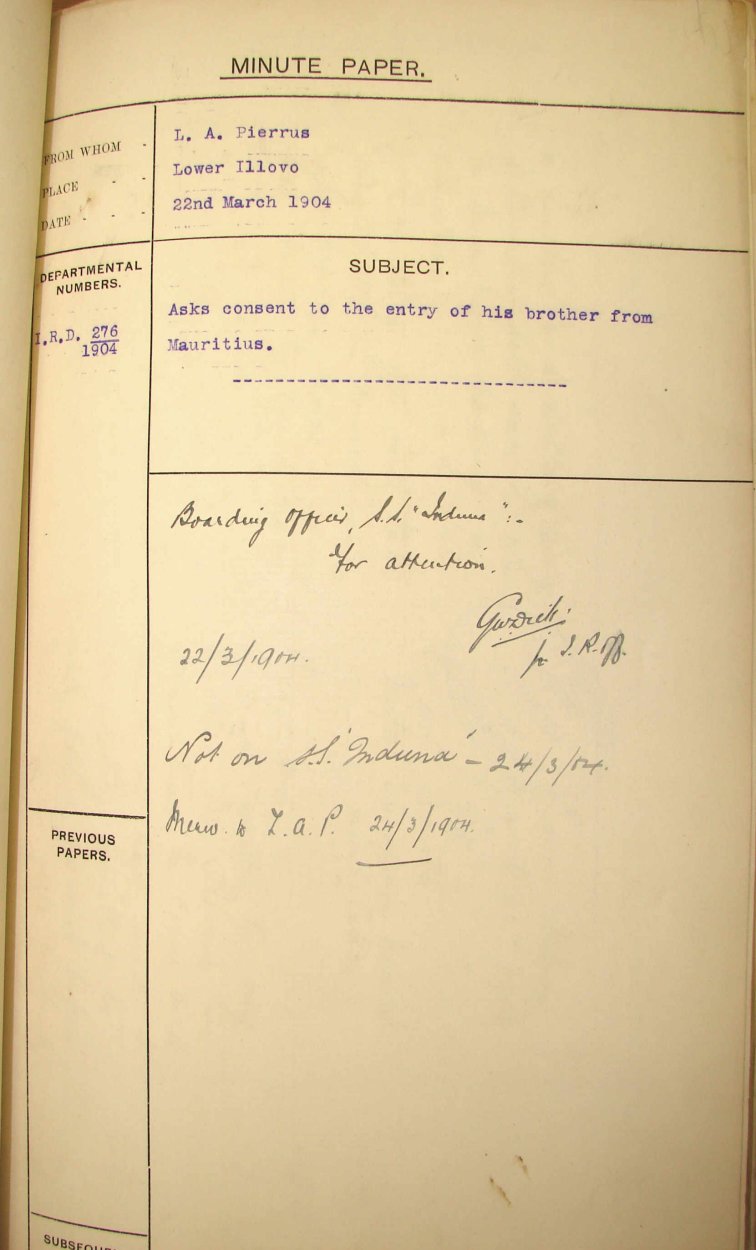 MINUTE PAPER.
FROM WHOM -
L. A. Pierrus
PLACE - -
Lower Illovo
DATE - - -
22nd March 1904
DEPARTMENTAL
NUMBERS.
I.R.D. 276
1904
SUBJECT.
Asks consent to the entry of his brother from
Mauritius.
Boarding Officer, S.S. "Induna" :-
For attention.
22/3/1904.
p I.R.Off.
Not on S.S. "Induna" - 24/3/04.
Memo. to L.A.P. 24/3/1904.
PREVIOUS
PAPERS.